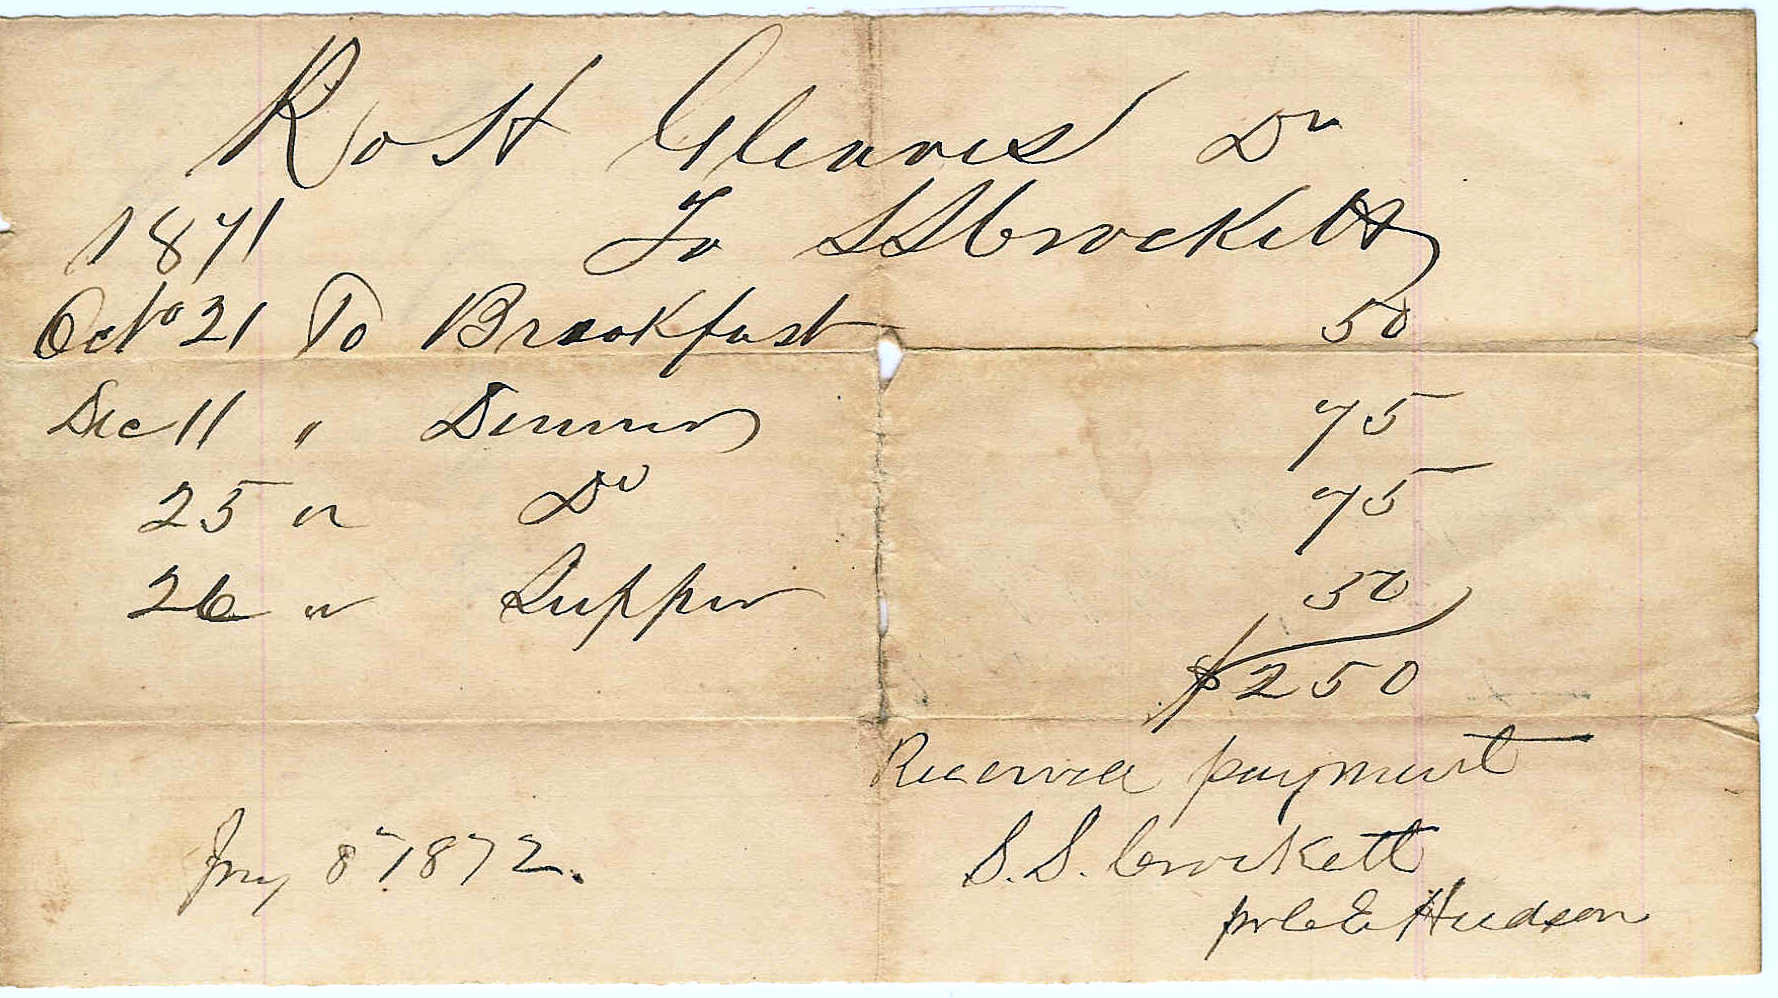 Ro H Cleaves Dr
1871 To SS Crockett
Octo 21 To Breakfast 50
Dec 11 " Dinner 75
25 " Do 75
26 " Supper 50
$250
Received payment
Jny 8" 1872. S. S. Crockett
pr C E Hudson